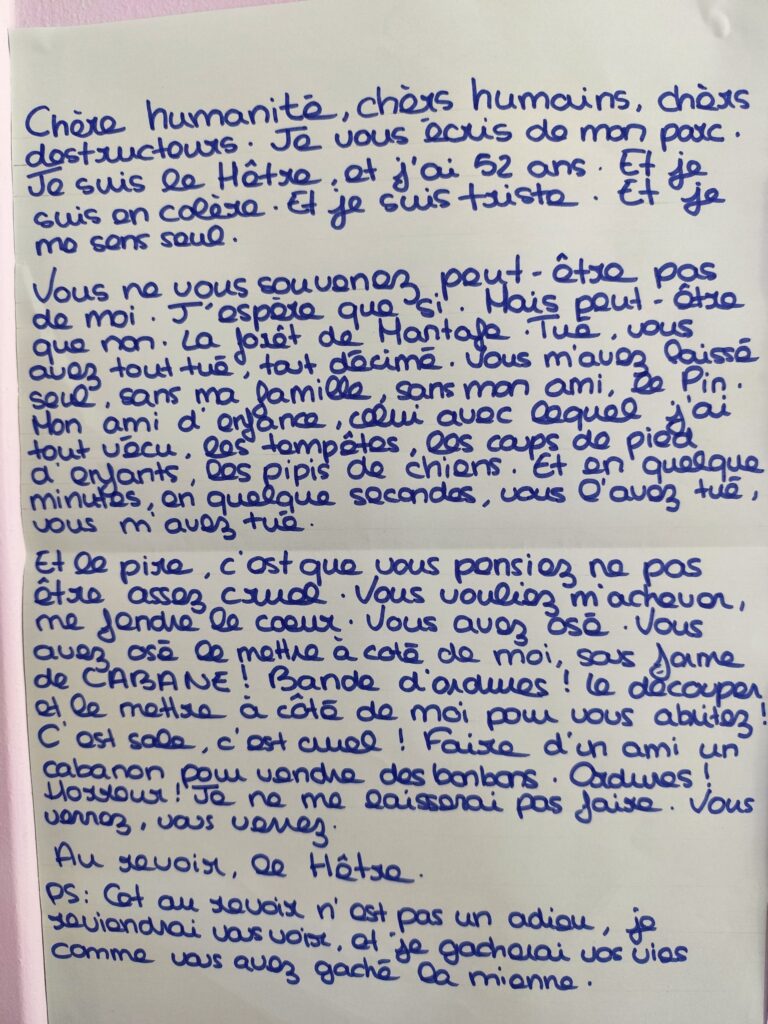 Chère humanité, chers humains, chers
destructeurs. Je vous écris de mon parc.
Je suis le Hêtre, et j'ai 52 ans. Et je
suis en colère. Et je suis triste. Et je
me sens seul.
Vous ne vous souvenez peut-être pas
de moi. J'espère que si. Mais peut-être
que non. La forêt de Mantafe. Tué, vous
avez tout tué, tout décimé. Vous m'avez laissé
seul, sans ma famille, sans mon ami, le Pin.
Mon ami d'enfance, celui avec lequel j'ai
tout vécu, les tempêtes, les coups de pied
d'enfants, les pipis de chiens. Et en quelque
minutes, en quelque secondes, vous l'avez tué,
vous m'avez tué.
Et le pire, c'est que vous pensiez ne pas
être assez cruel. Vous vouliez m'achever,
me fendre le coeur. Vous avez osé. Vous
avez osé le mettre à coté de moi, sous forme
de CABANE ! Bande d'ordures ! Le découper
et le mettre à côté de moi pour vous abritez !
C'est sale, c'est cruel ! Faire d'un ami un
cabanon pour vendre des bonbons. Ordures !
Horreur ! Je ne me laisserai pas faire. Vous
verrez, vous verrez.
Au revoir, le Hêtre.
PS: Cet au revoir n'est pas un adieu, je
reviendrai vous voir, et je gacherai vos vies
comme vous avez gaché la mienne.